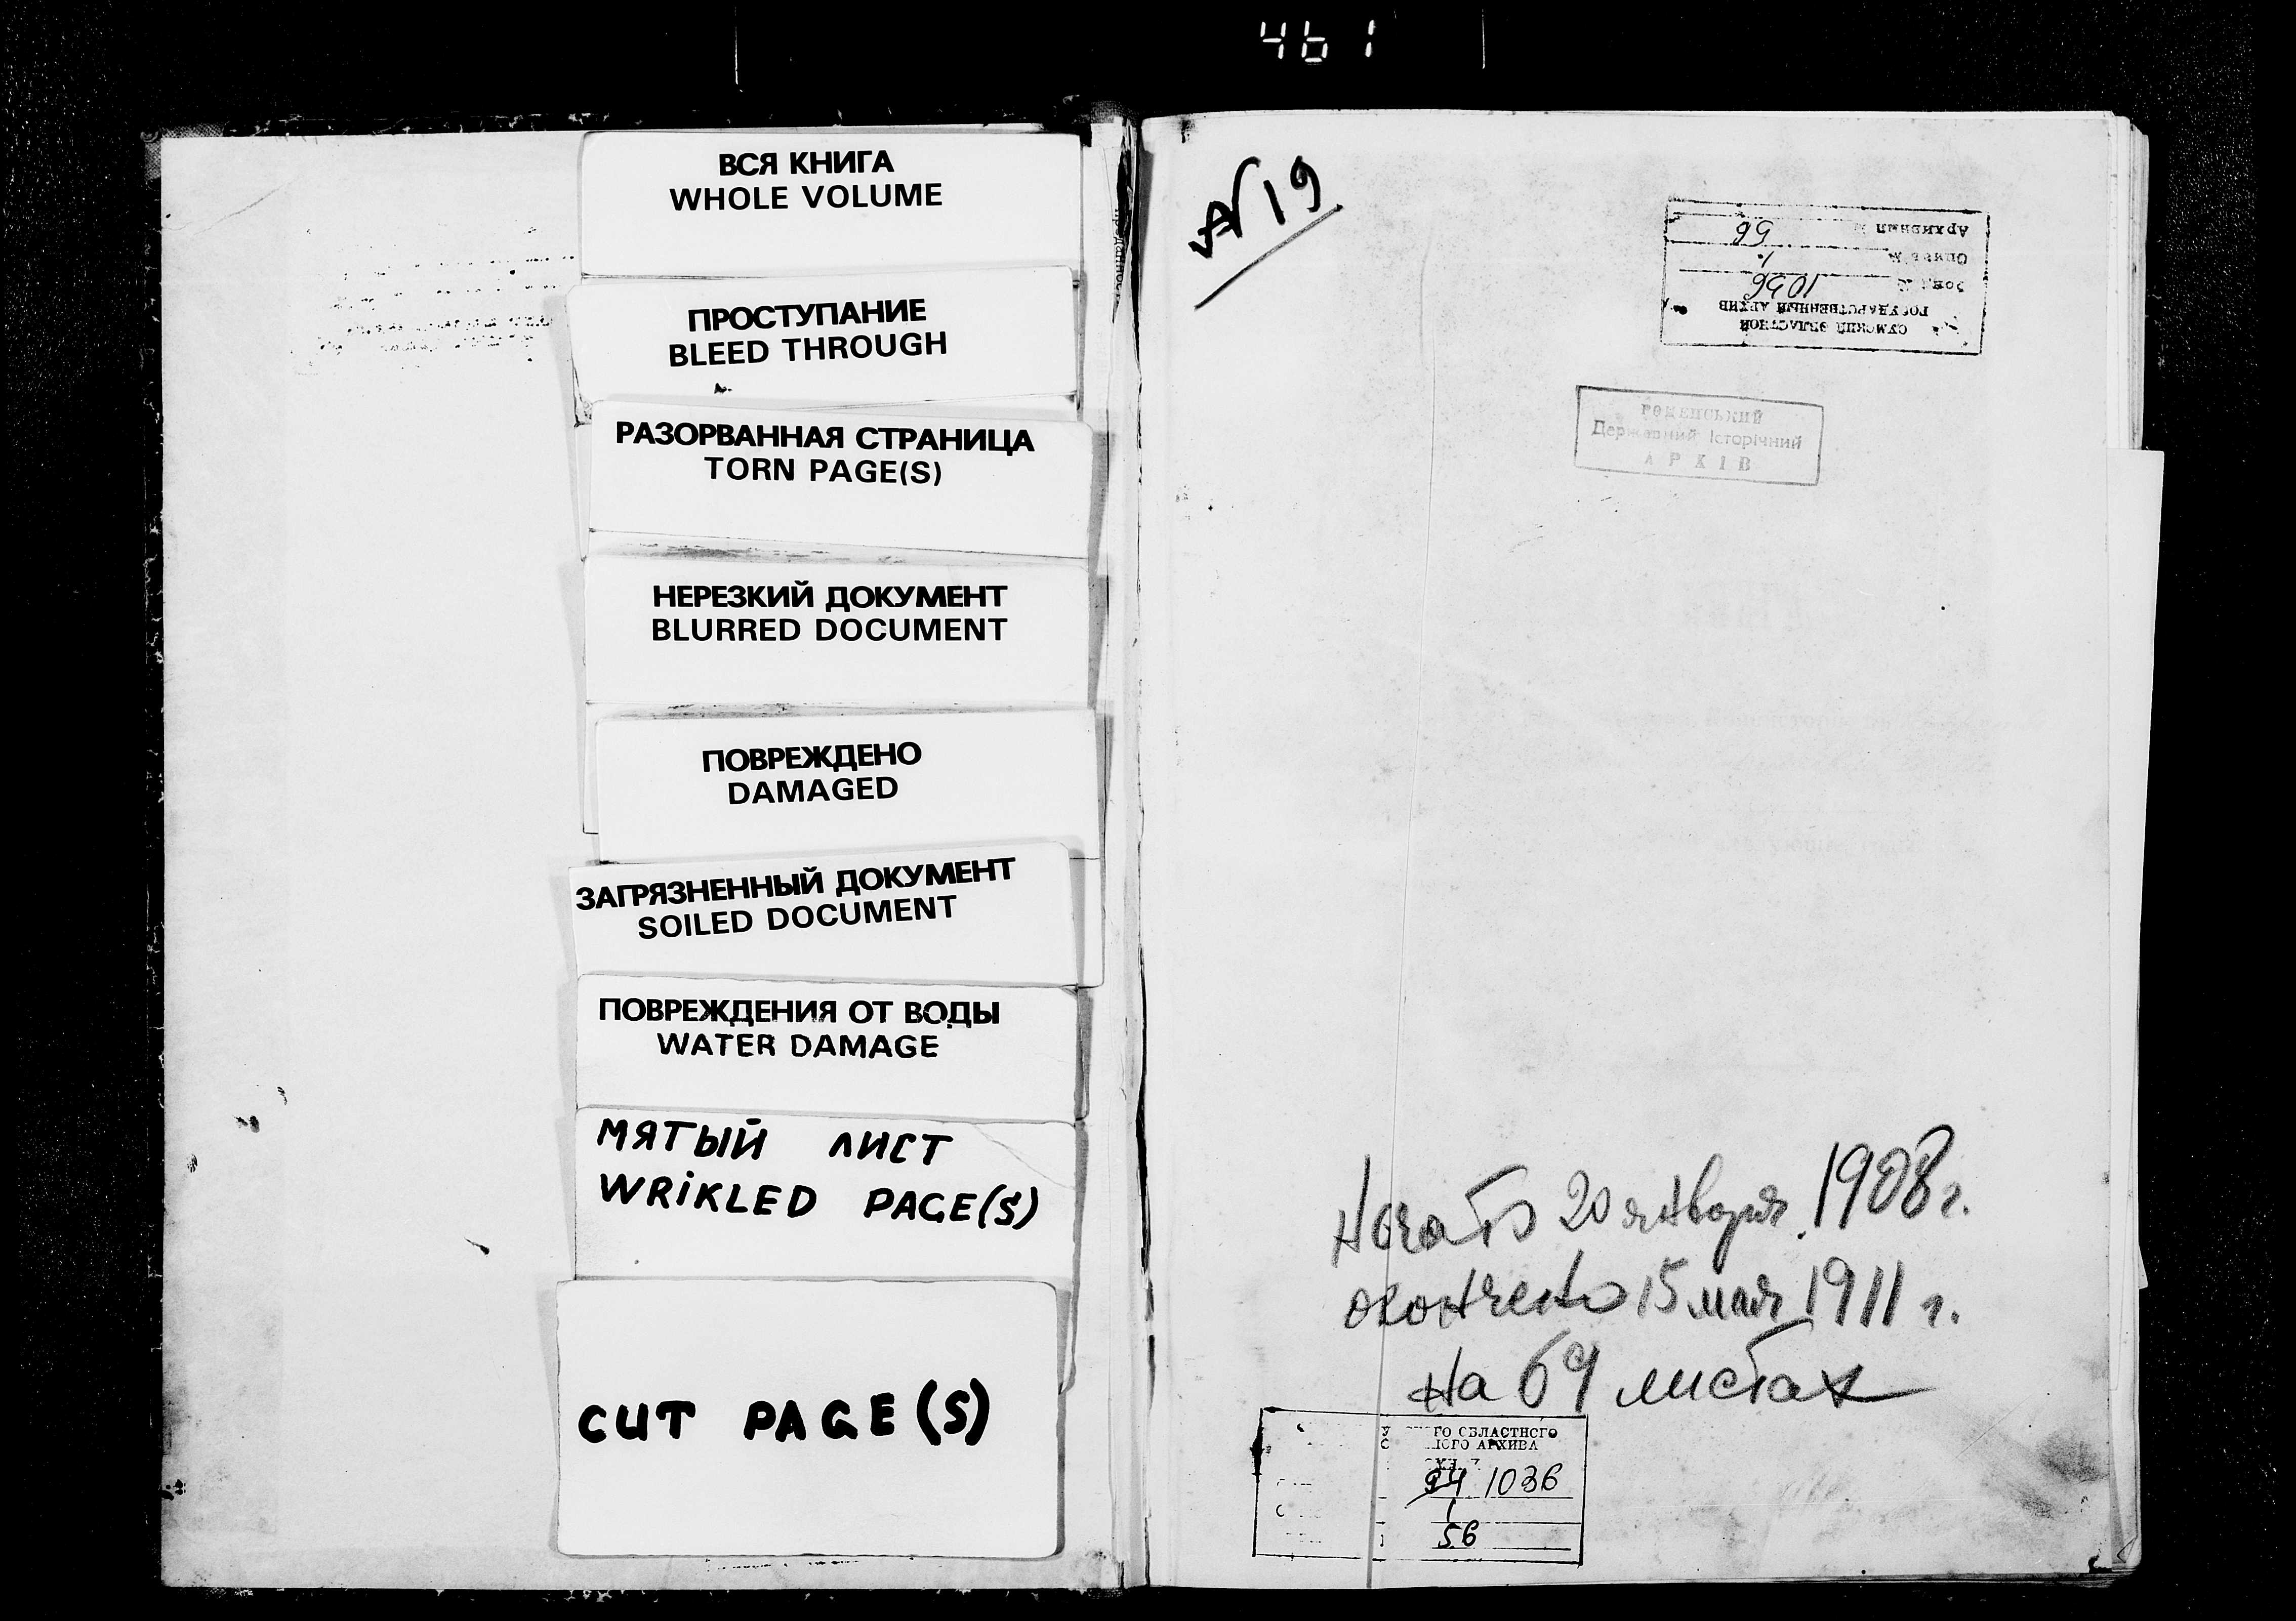 461
ВСЯ КНИГА
WHOLE VOLUME
ПРОСТУПАНИЕ
BLEED THROUGH
РАЗОРВАННАЯ СТРАНИЦА
TORN PAGE(S)
НЕРЕЗКИЙ ДОКУМЕНТ
BLURRED DOCUMENT
ПОВРЕЖДЕНО
DAMAGED
ЗАГРЯЗНЕННЫЙ ДОКУМЕНТ
SOILED DOCUMENT
ПОВРЕЖДЕНИЯ ОТ ВОДЫ
WATER DAMAGE
МЯТЫЙ ЛИСТ
WRIKLED PAGE(S)
CUT PAGE(S)
№ 19
СУМСКИЙ ОБЛАСТНОЙ
ГОСУДАРСТВЕННЫЙ АРХИВ
Фонд № 1036
Опись № 1
Архивный № 56
РОМЕНСЬКИЙ
Державний Історічний
АРХІВ
Начато 20 января 1908 г.
окончено 15 мая 1911 г.
на 69 листах
ГО ОБЛАСТНОГО
АРХИВА
94 1036
1
56